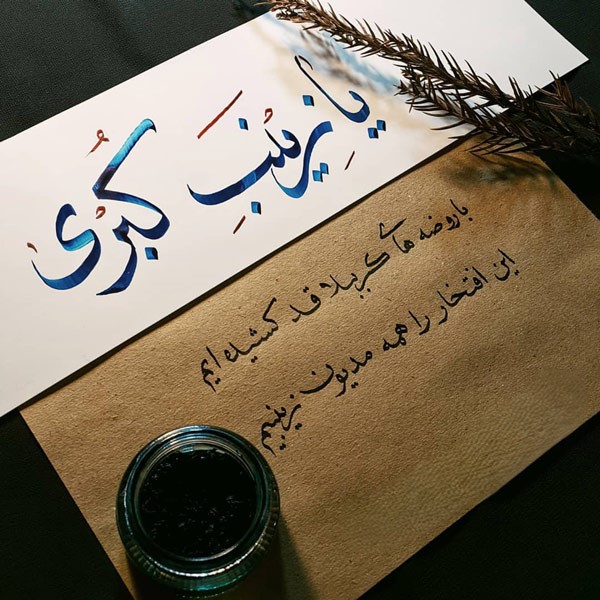 یا زینَبِ کُبریٰ
با روضه های کربلا قد کشیده ایم
این افتخار را همه مدیون زینبیم